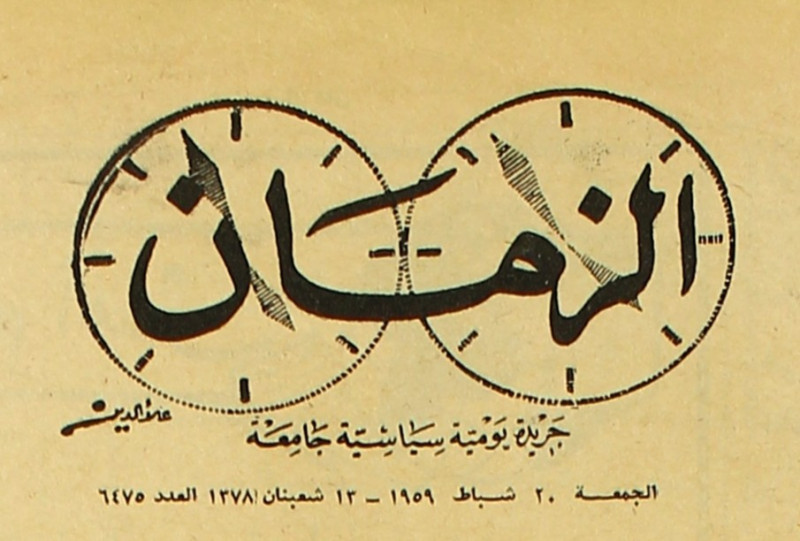 الزمان
علاء الدين
جريدة يومية سياسية جامعة
الجمعة ٢٠ شباط ١٩٥٩ - ١٣ شعبان ١٣٧٨ العدد ٦٤٧٥